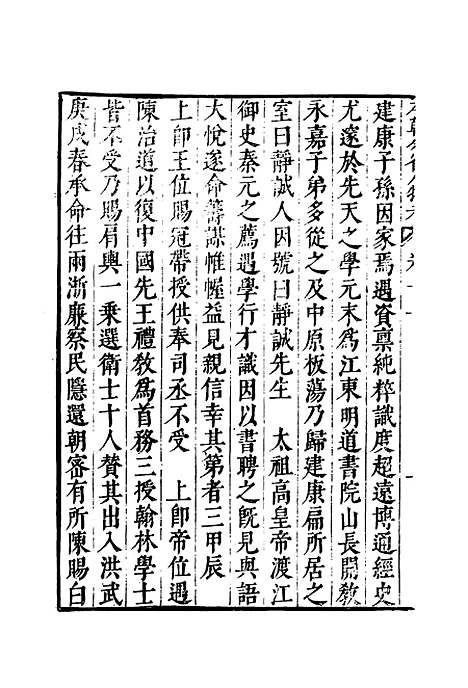 建康子孫因家焉遇資稟純粹識度超遠博通經史
尤邃於先天之學元末為江東明道書院山長開教
永嘉子弟多從之及中原板蕩乃歸建康扁所居之
室曰靜誠人因號曰靜誠先生　太祖高皇帝渡江
御史秦元之薦遇學行才識因以書聘之既見與語
大悅遂命籌謀惟幄益見親信幸其第者三甲辰
上即王位賜冠帶授供奉司丞不受　上即帝位遇
陳治道以復中國先王禮教為首務三授翰林學士
皆不受乃賜肩輿一乗選衛士十人贊其出入洪武
庚戌春承命往兩浙廉察民隱還朝密有所陳賜白